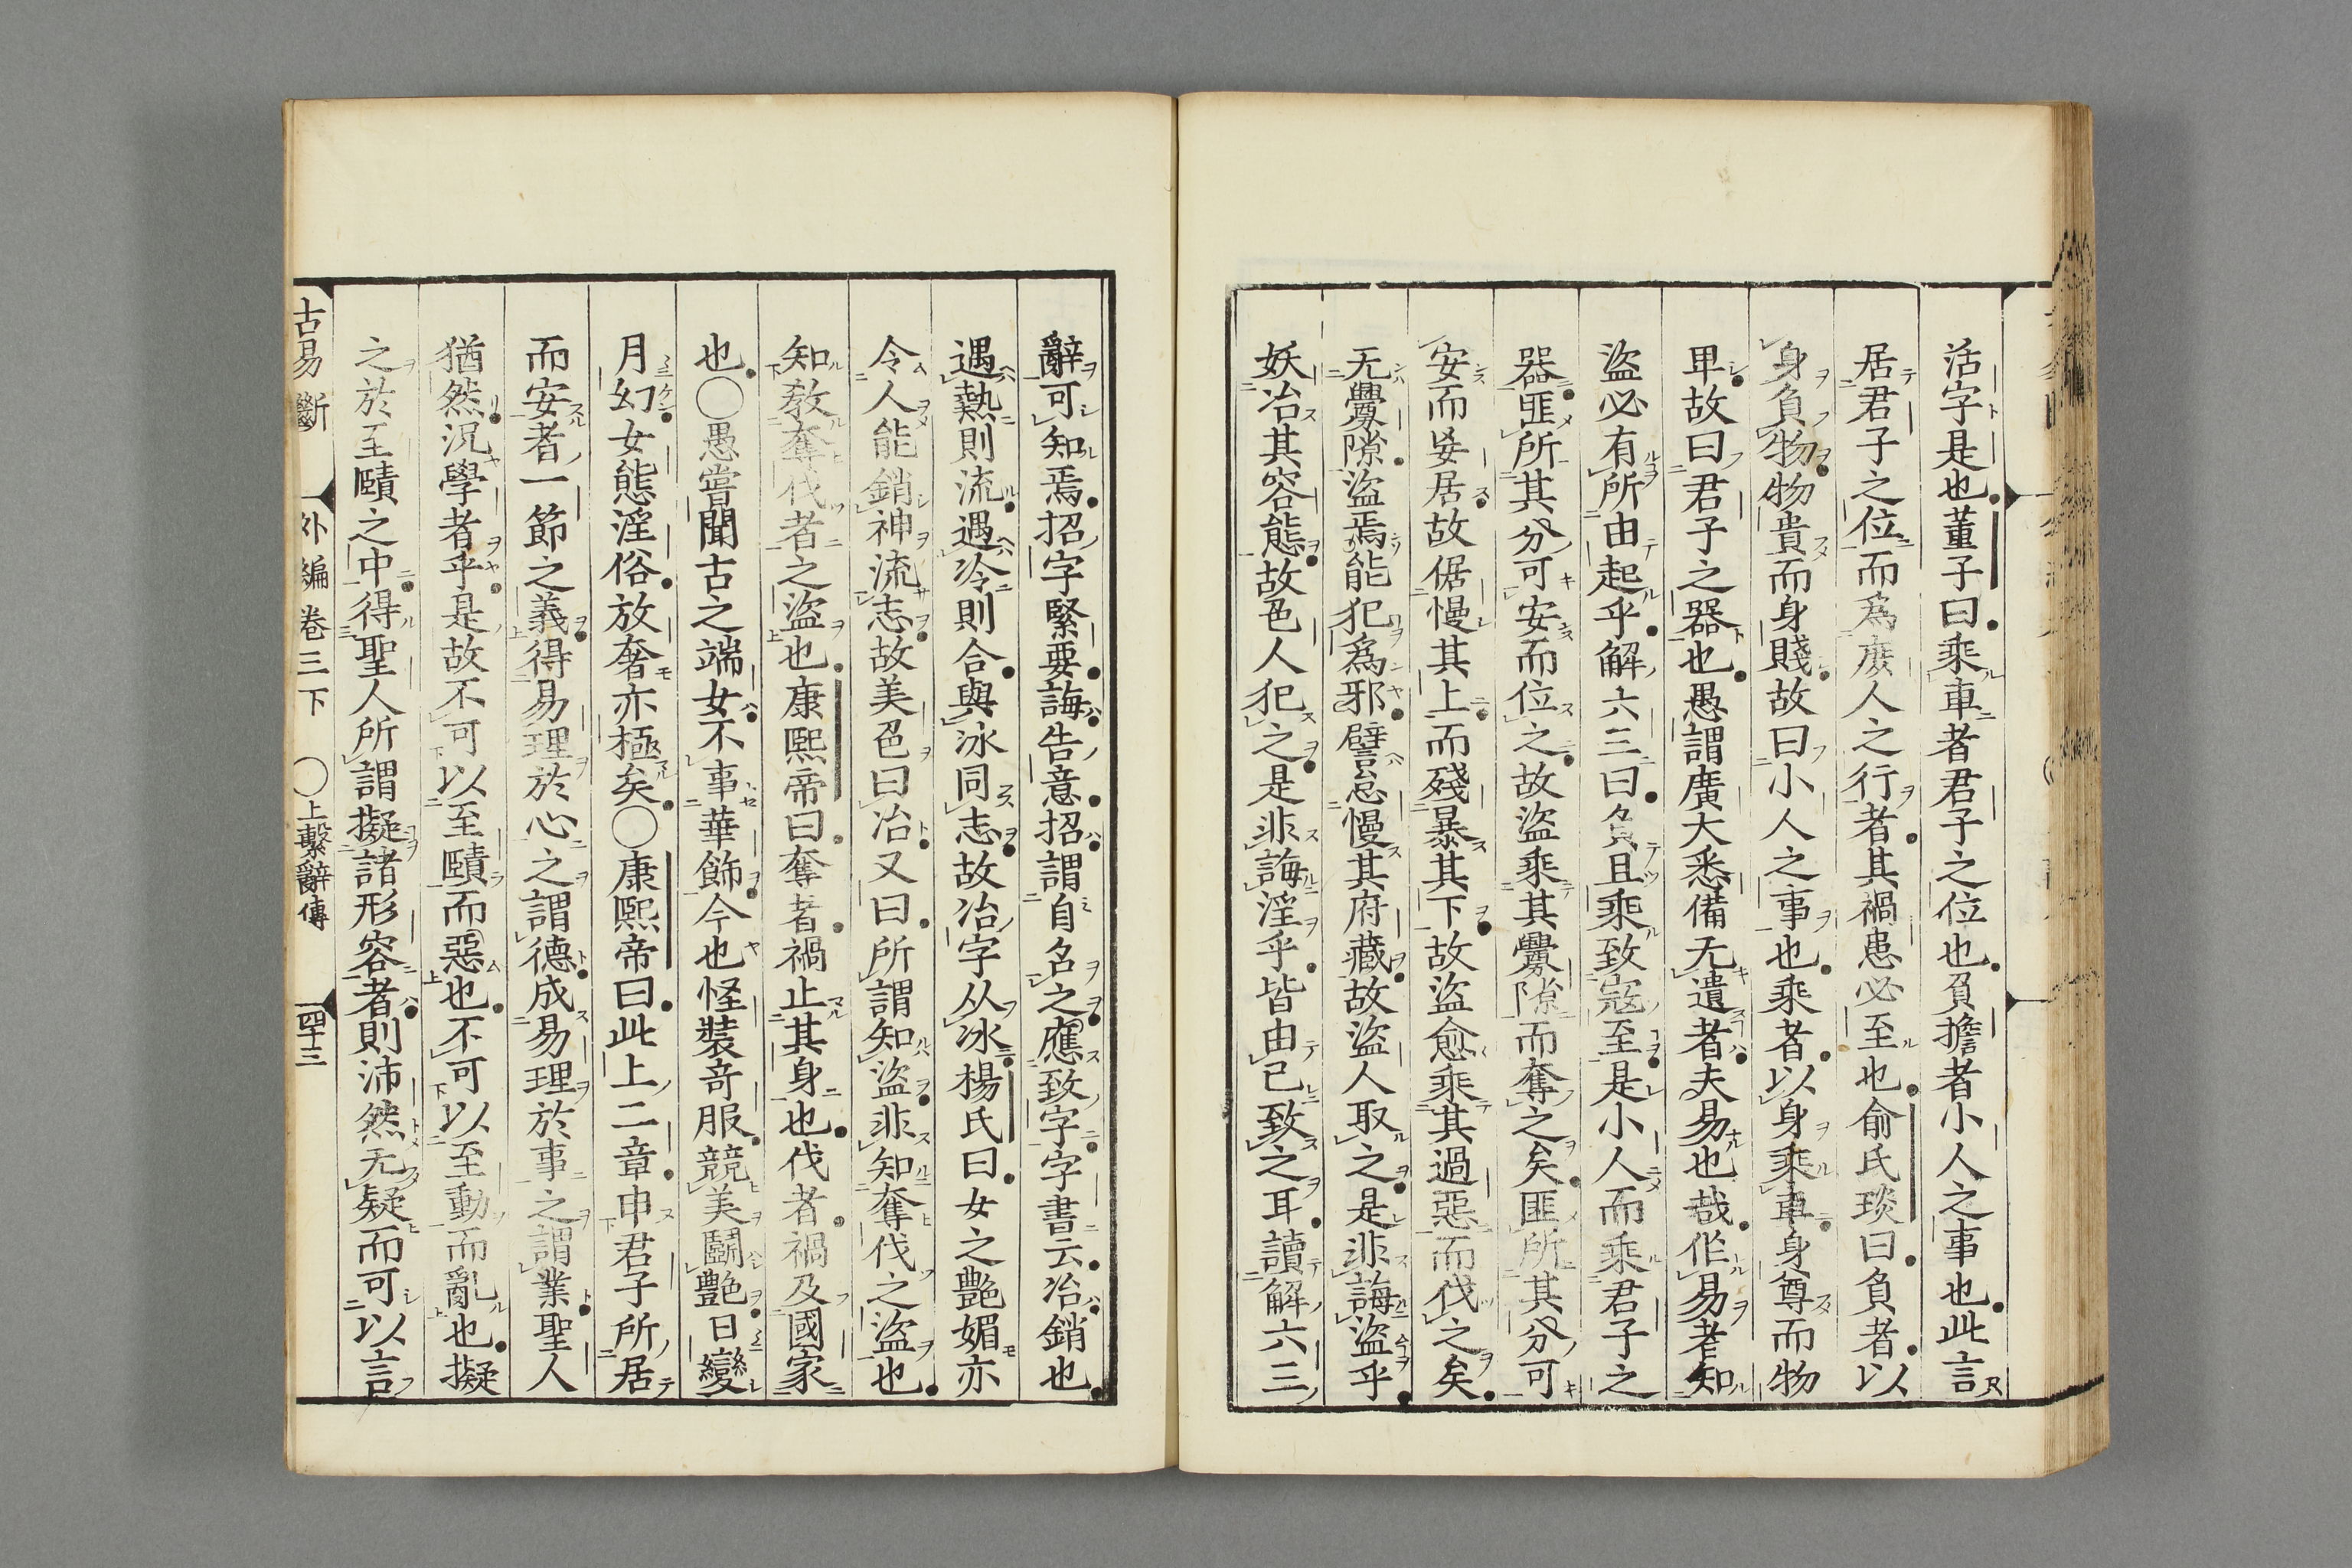 活字是也董子曰乘車者君子之位也負擔者小人之事也此言
居君子之位而爲庶人之行者其禍患必至也俞氏琰曰負者以
身負物物貴而身賤故曰小人之事也乘者以身乘車身尊而物
卑故曰君子之器也愚謂廣大悉備无遺者夫易也哉作易者知
盜必有所由起乎解六三曰負且乘致寇至是小人而乘君子之
器匪所其分可安而位之故盜乘其釁隙而奪之矣匪所其分可
安而妟居故倨慢其上而殘暴其下故盜愈乘其過惡而伐之矣
无釁隙盜焉能犯爲邪譬怠慢其府藏故盜人取之是非誨盜乎
妖冶其容態故色人犯之是非誨淫乎皆由已致之耳讀解六三
辭可知焉招字緊要誨告意招謂自名之應致字字書云冶銷也
遇熱則流遇冷則合與冰同志故冶字从冰楊氏曰女之艷媚亦
令人能銷神流志故美色曰冶又曰所謂知盜非知奪伐之盜也
知教奪伐者之盜也康熙帝曰奪者禍止其身也伐者禍及國家
也〇愚嘗聞古之端女不事華飾今也怪裝奇服競美鬭艷日變
月幻女態淫俗放奢亦極矣〇康熙帝曰此上二章申君子所居
而安者一節之義得易理於心之謂德成易理於事之謂業聖人
猶然況學者乎是故不可以至賾而惡也不可以至動而亂也擬
之於至賾之中得聖人所謂擬諸形容者則沛然无疑而可以言
古易斷 外編卷三下 〇上繫辭傳 四十三